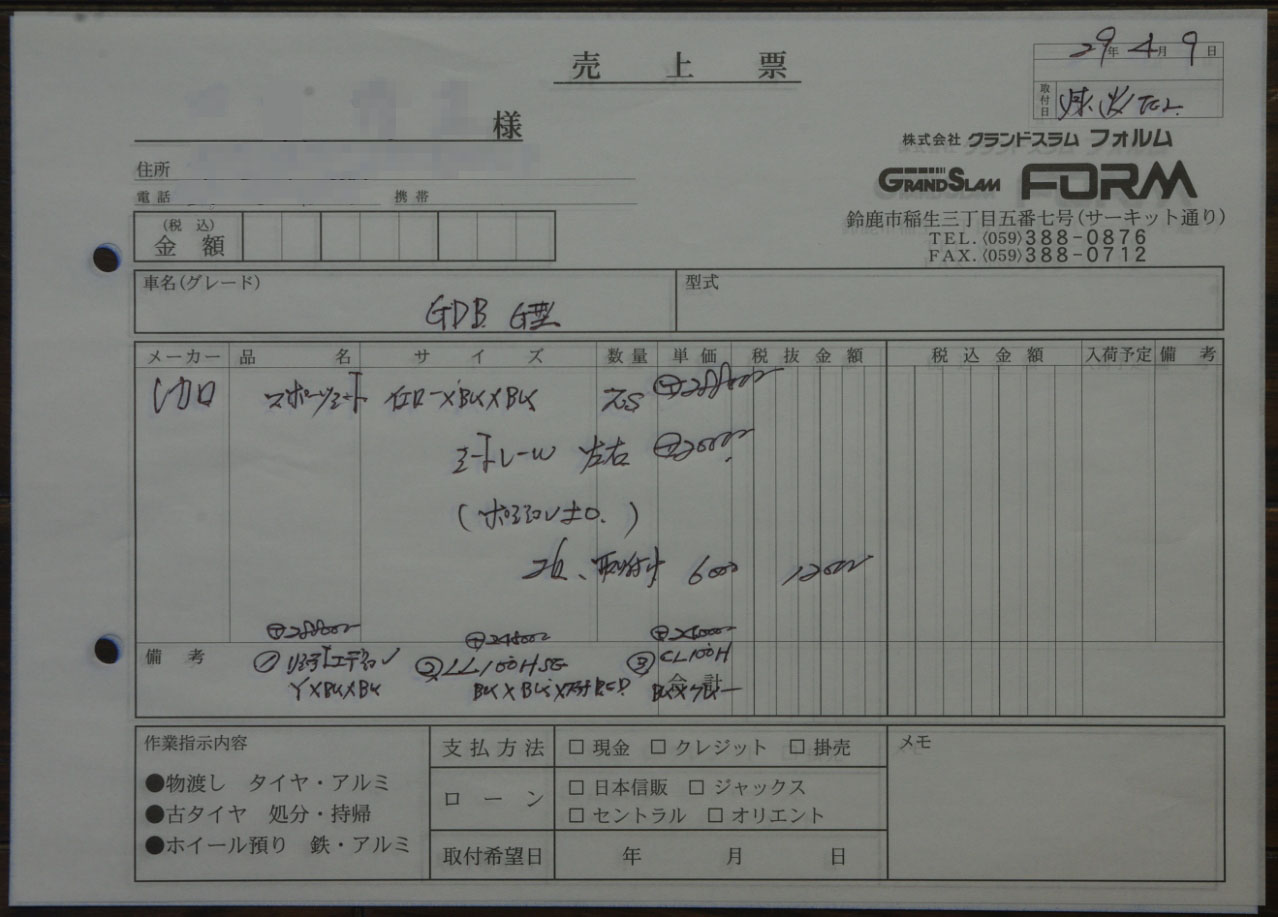 売上票
29年4月9日
取付日 月、火 TEL
様
株式会社 グランドスラム フォルム
GRANDSLAM FORM
住所
電話 携帯
鈴鹿市稲生三丁目五番七号(サーキット通り)
TEL.〈059〉388-0876
FAX.〈059〉388-0712
(税込)
金額
車名(グレード) 型式
GDB G型
メーカー 品名 サイズ 数量 単価 税抜金額 税込金額 入荷予定 備考
レカロ スポーツシート イエロー×BK×BK
シートレール 左右
(ポジション±0.)
取付 6000 12000
備考
① Y×BK×BK
② LL100H
BK×BK× RED
③ CL100H
合計
作業指示内容 支払方法 □ 現金 □ クレジット □ 掛売 メモ
●物渡し タイヤ・アルミ
●古タイヤ 処分・持帰
●ホイール預り 鉄・アルミ
ローン □ 日本信販 □ ジャックス
□ セントラル □ オリエント
取付希望日 年 月 日